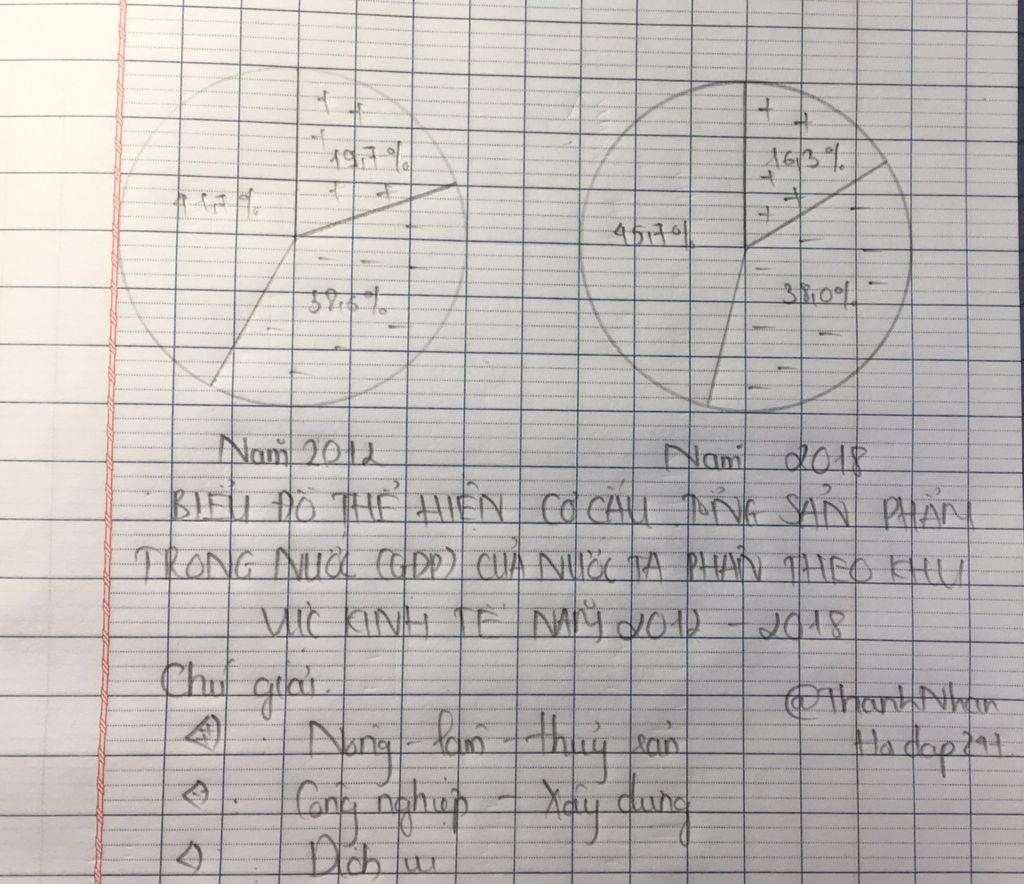 19,7%
41,7%
38,6%
16,3%
45,7%
38,0%
Năm 2012
Năm 2018
BIỂU ĐỒ THỂ HIỆN CƠ CẤU TỔNG SẢN PHẨM
TRONG NƯỚC (GDP) CỦA NƯỚC TA PHÂN THEO KHU
VỰC KINH TẾ NĂM 2012 - 2018
Chú giải.
@ThanhNhan
Nông - lâm - thủy sản
Hodap247
Công nghiệp - Xây dựng
Dịch vụ